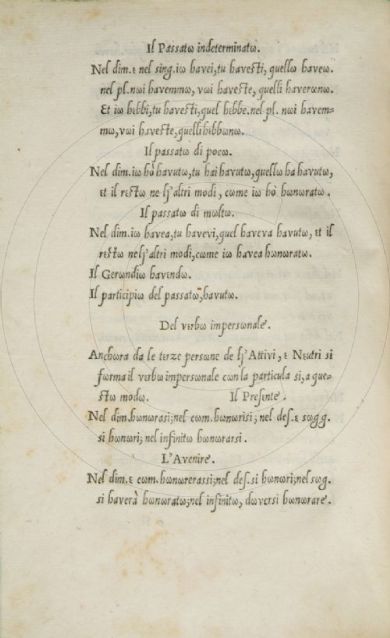 Il Passatω indeterminatω.
Nel dim. ε nel sing. iω havei, tu havesti, quellω haveω.
nel pl. nωi havemmω, vωi haveste, quelli haverωnω.
Et iω hεbbi, tu havesti, quel hεbbe. nel pl. nωi havem=
mω, vωi haveste, quelli hεbbωnω.
Il passatω di pocω.
Nel dim. iω hò havutω, tu hai havutω, quellω ha havutω,
et il restω ne lj'altri modi, cωme iω hò hωnωratω.
Il passatω di mωltω.
Nel dim. iω havea, tu havevi, quel haveva havutω, et il
restω ne lj'altri modi, cωme iω havea hωnωratω.
Il Gerundiω havεndω.
Il participiω del passatω, havutω.
Del vεrbω impersωnale.
Anchωra da le tεrze persωne de lj'Attivi, ε Nεutri si
fωrma il vεrbω impersωnale cωn la particula si, a que-
stω modω. Il Presεnte.
Nel dim. hωnωrasi; nel cωm. hωnωrisi; nel des. ε sωgg.
si hωnωri; nel infinitω hωnωrarsi.
L'Avenire.
Nel dim. ε cωm. hωnωrerassi; nel des. si hωnωri; nel sωg.
si haverà hωnωratω; nel infinitω, dωversi hωnωrare.